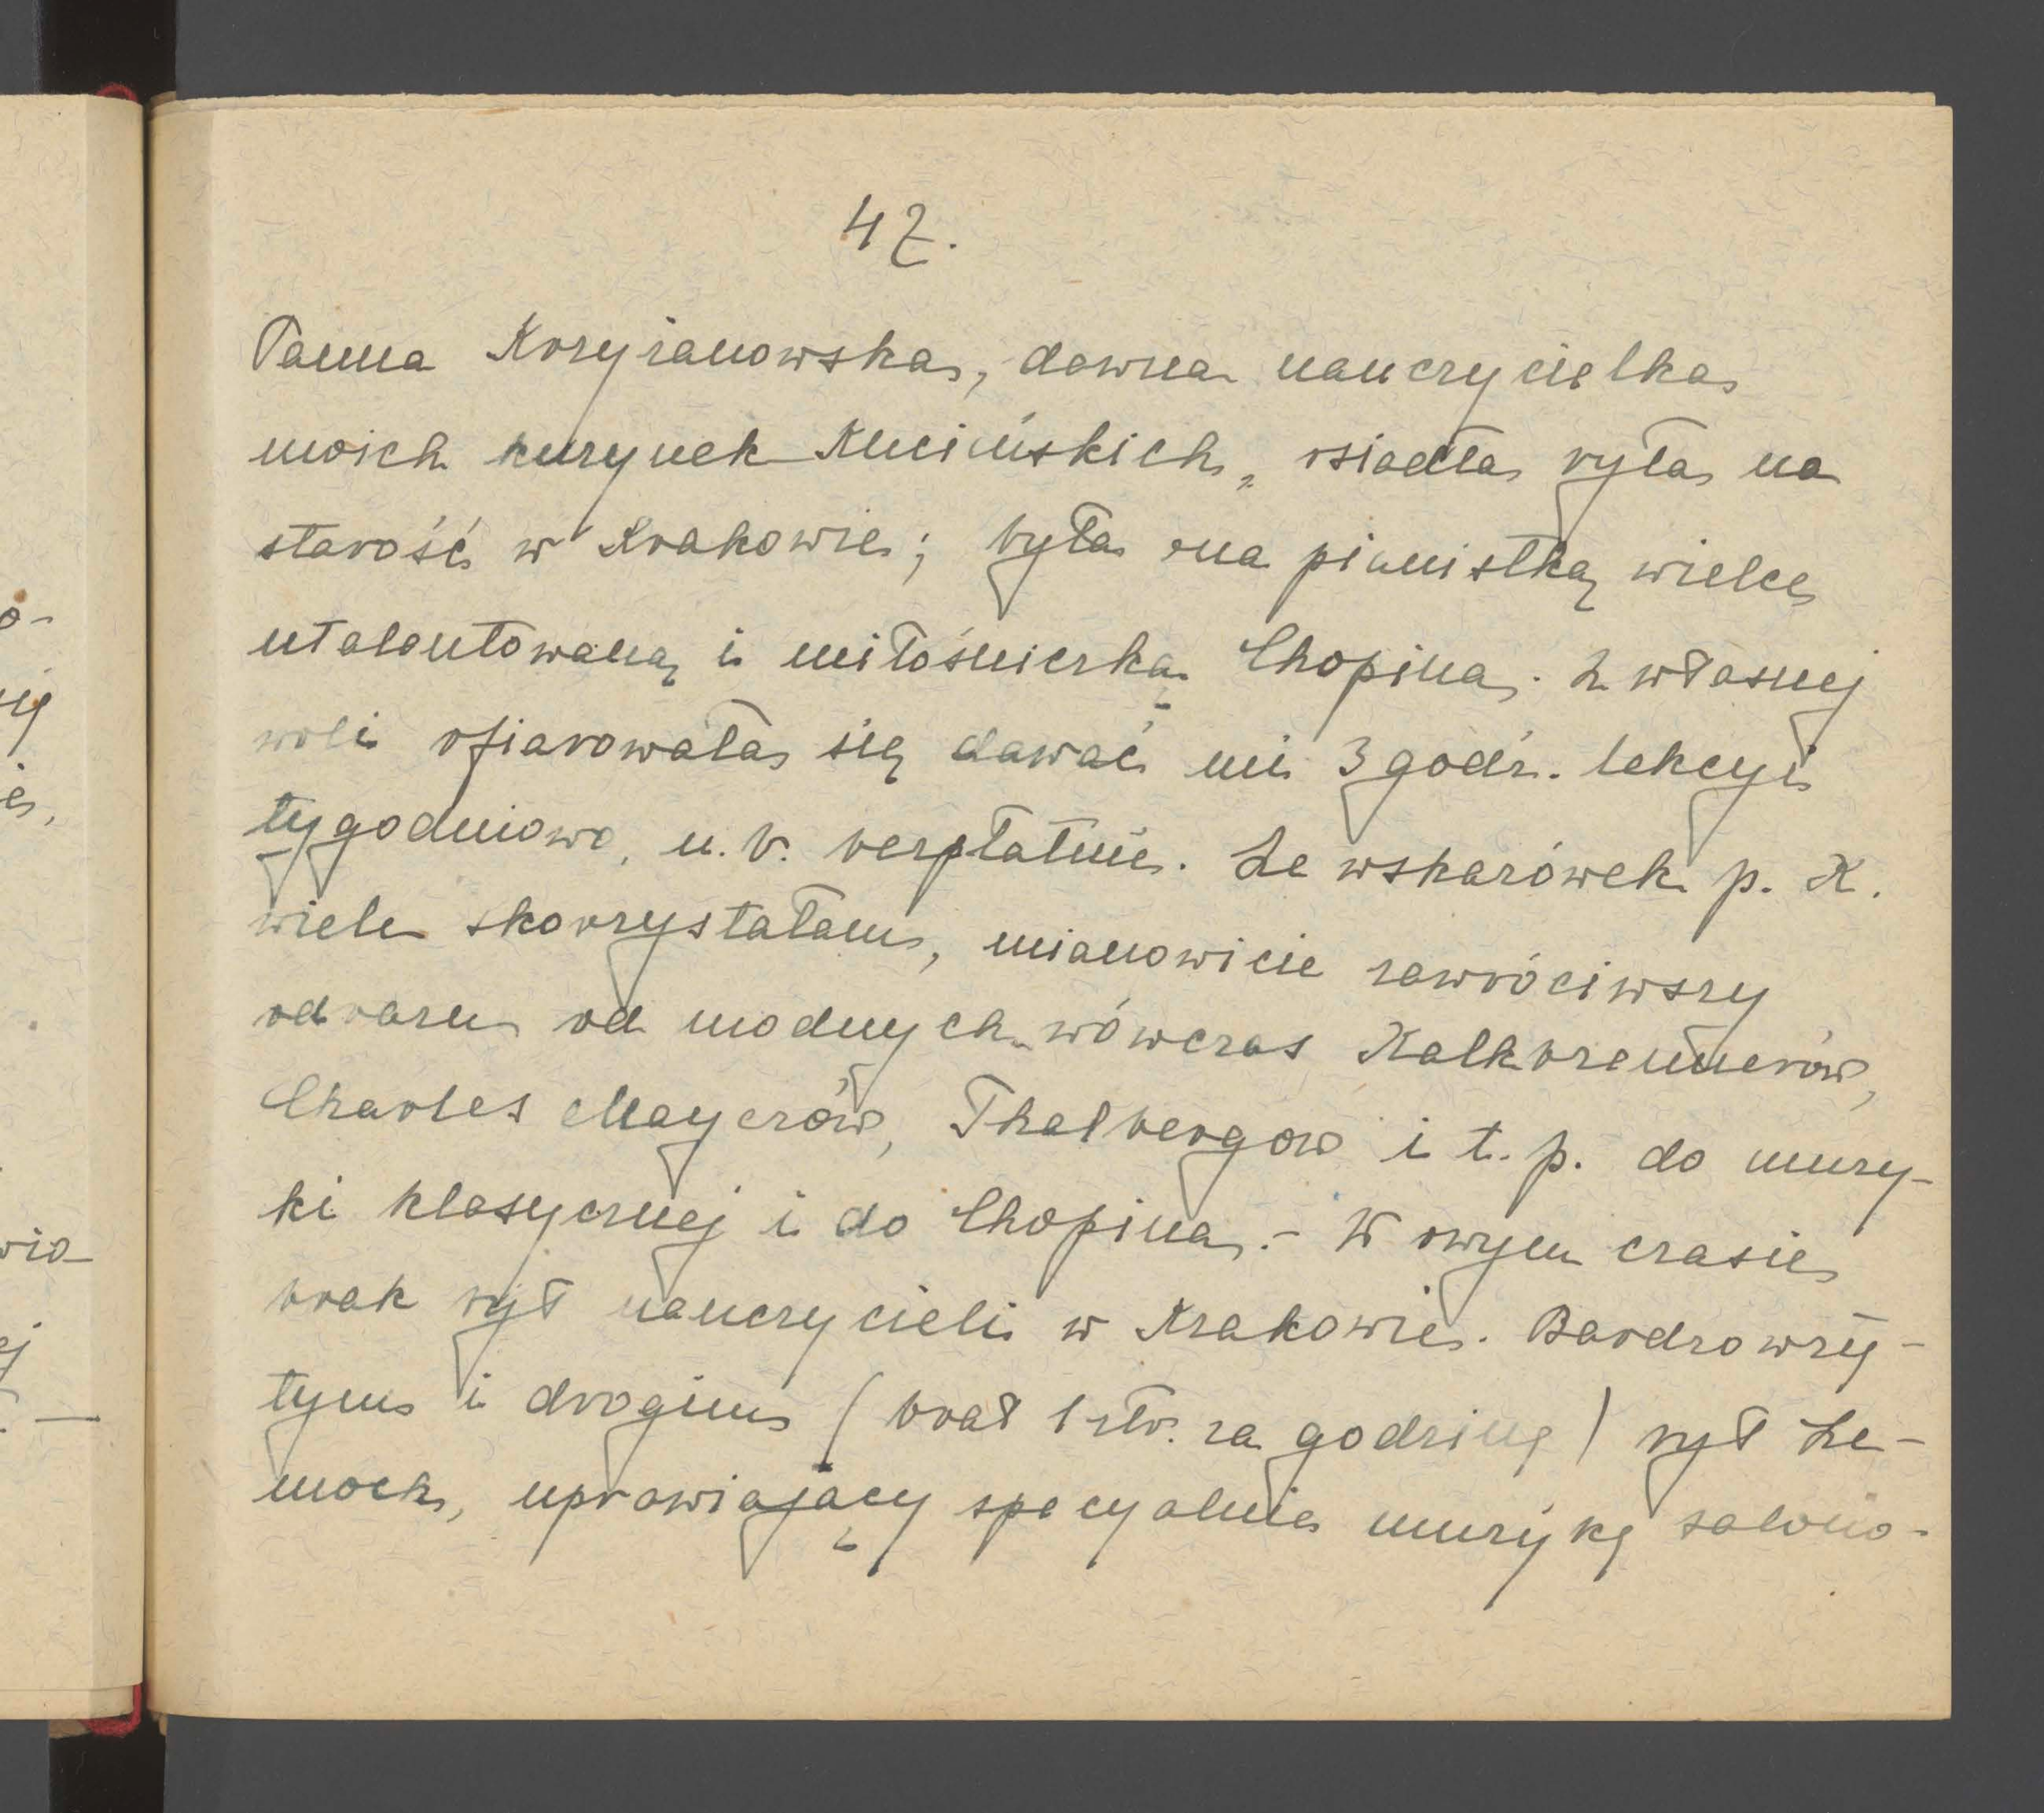 42.
Panna Krzyżanowska, dawna nauczycielka
moich kuzynek Kucińskich, osiadła była na
starość w Krakowie; była ona pianistką wielce
utalentowaną i miłośniczką Chopina. Z własnej
woli ofiarowała się dawać mi 3 godz. lekcyi
tygodniowo, n. b. bezpłatnie. Ze wskazówek p. K.
wiele skorzystałam, mianowicie zawróciwszy
odrazu od modnych wówczas Kalkbrennerów,
Charles Mayerów, Thalbergów i t. p. do muzy-
ki klasycznej i do Chopina. - W owym czasie
brak był nauczycieli w Krakowie. Bardzo wzię-
tym i drogim (brał 1 złr. za godzinę) był Ze-
moch, uprawiający specyalnie muzykę salono-
o-
ej
ie,
wia-
ej
. —